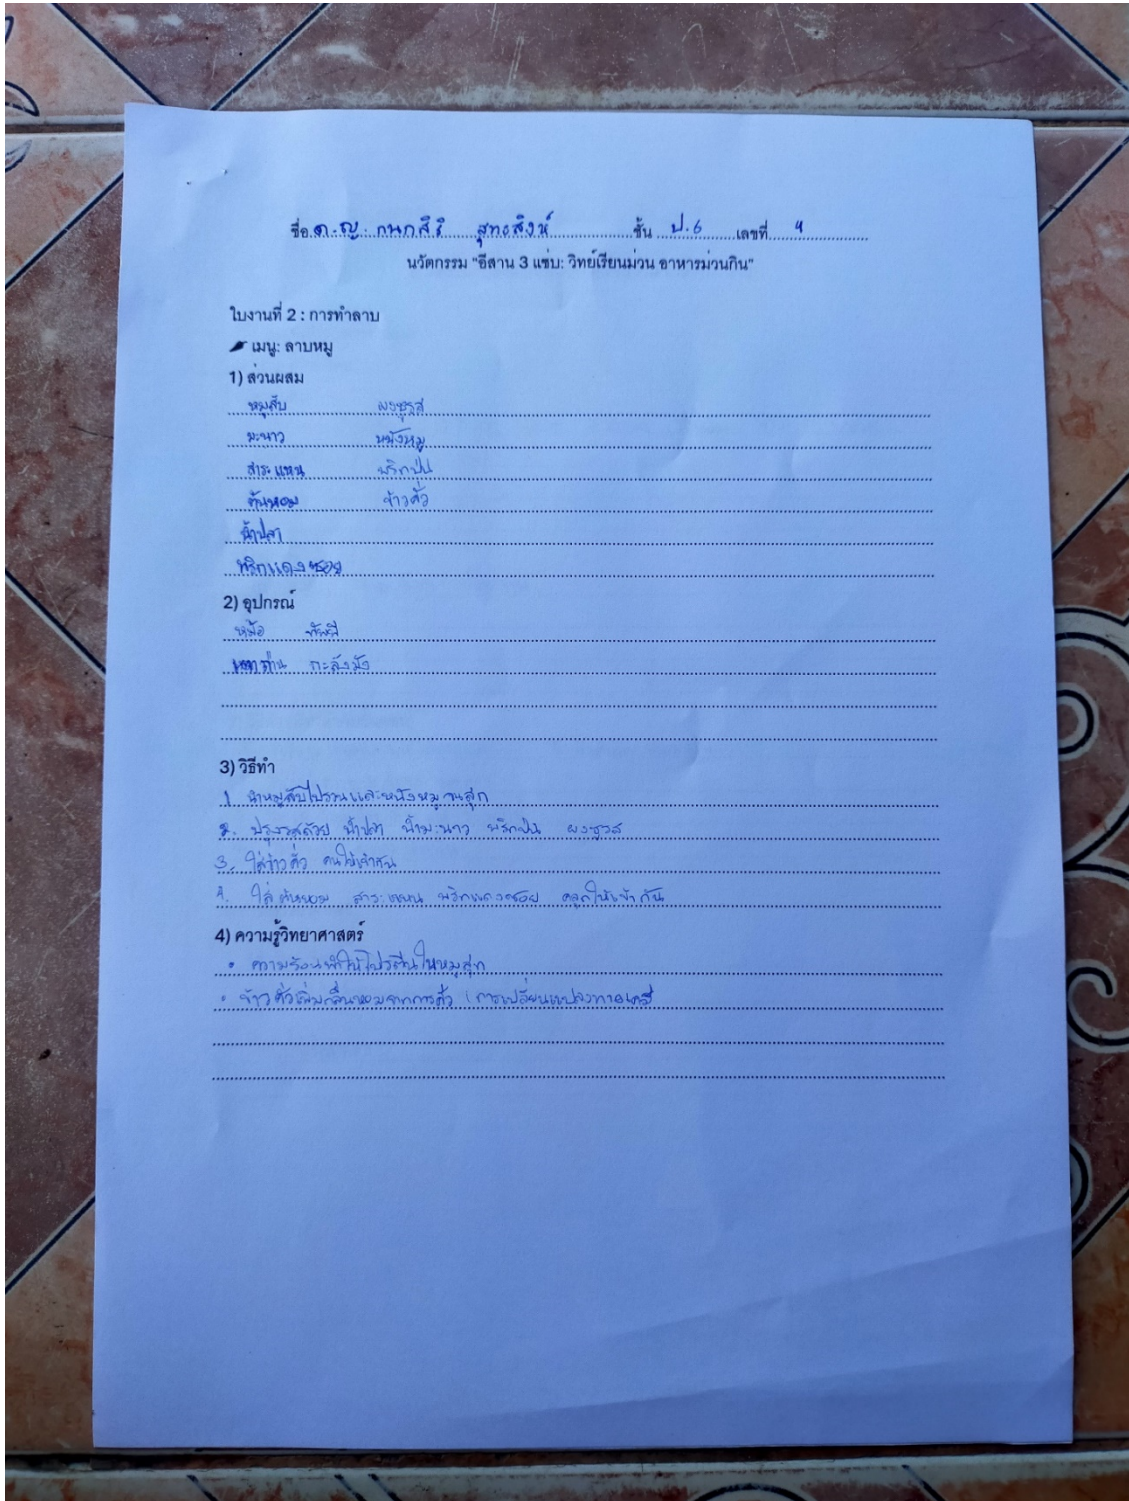 ชื่อ ด.ญ. กนกสิริ สุทธสิงห์ ชั้น ป.6 เลขที่ 4
นวัตกรรม "อีสาน 3 แซ่บ: วิทย์เรียนม่วน อาหารม่วนกิน"
ใบงานที่ 2 : การทำลาบ
เมนู: ลาบหมู
1) ส่วนผสม
หมูสับ ผงชูรส
มะนาว หนังหมู
สาระแหน พริกป่น
ต้นหอม ข้าวคั่ว
น้ำปลา
พริกแดงซอย
2) อุปกรณ์
หม้อ ทัพพี
เตาถ่าน กะละมัง
3) วิธีทำ
1. นำหมูสับไปรวนและหนังหมูจนสุก
2. ปรุงรสด้วย น้ำปลา น้ำมะนาว พริกป่น ผงชูรส
3. ใส่ข้าวคั่ว คนให้เข้ากัน
4. ใส่ต้นหอม สาระแหน พริกแดงซอย คลุกให้เข้ากัน
4) ความรู้วิทยาศาสตร์
• ความร้อนทำให้โปรตีนในหมูสุก
• ข้าวคั่วเพิ่มกลิ่นหอมจากการคั่ว (การเปลี่ยนแปลงทางเคมี